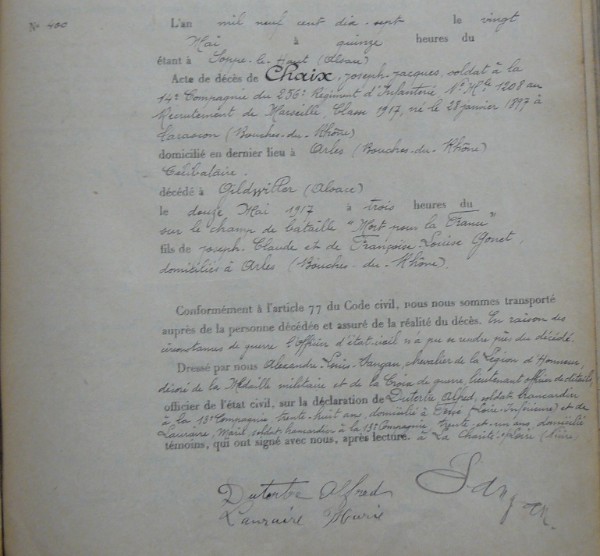 N° 400
L'an mil neuf cent dix-sept le vingt
Mai à quinze heures du
étant à Soppe-le-Haut (Alsace)
Acte de décès de Chaix, Joseph-Jacques, soldat à la
14e Compagnie du 256e Régiment d'Infanterie N° Mle 1208 au
Recrutement de Marseille, Classe 1917, né le 28 janvier 1897 à
Tarascon (Bouches-du-Rhône)
domicilié en dernier lieu à Arles (Bouches-du-Rhône)
Célibataire.
décédé à (Alsace)
le douze Mai 1917 à trois heures du
sur le champ de bataille "Mort pour la France"
fils de Joseph-Claude et de Françoise-Louise Gonet,
domiciliés à Arles (Bouches-du-Rhône).
Conformément à l'article 77 du Code civil, nous nous sommes transporté
auprès de la personne décédée et assuré de la réalité du décès. En raison des
circonstances de guerre l'officier d'état-civil n'a pu se rendre près du décédé.
Dressé par nous Alexandre-Louis chevalier de la Légion d'Honneur
décoré de la Médaille militaire et de la Croix de guerre, lieutenant officier de détails,
officier de l'état civil, sur la déclaration de Dutertre Alfred, soldat brancardier
à la 13e Compagnie trente-huit ans, domicilié à (Loire-Inférieure) et de
Lauraire, Marie, soldat brancardier à la 13e Compagnie trente et un ans, domicilié
témoins, qui ont signé avec nous, après lecture. à La Charité-s/Loire (Nièvre)
Dutertre Alfred
Lauraire Marie